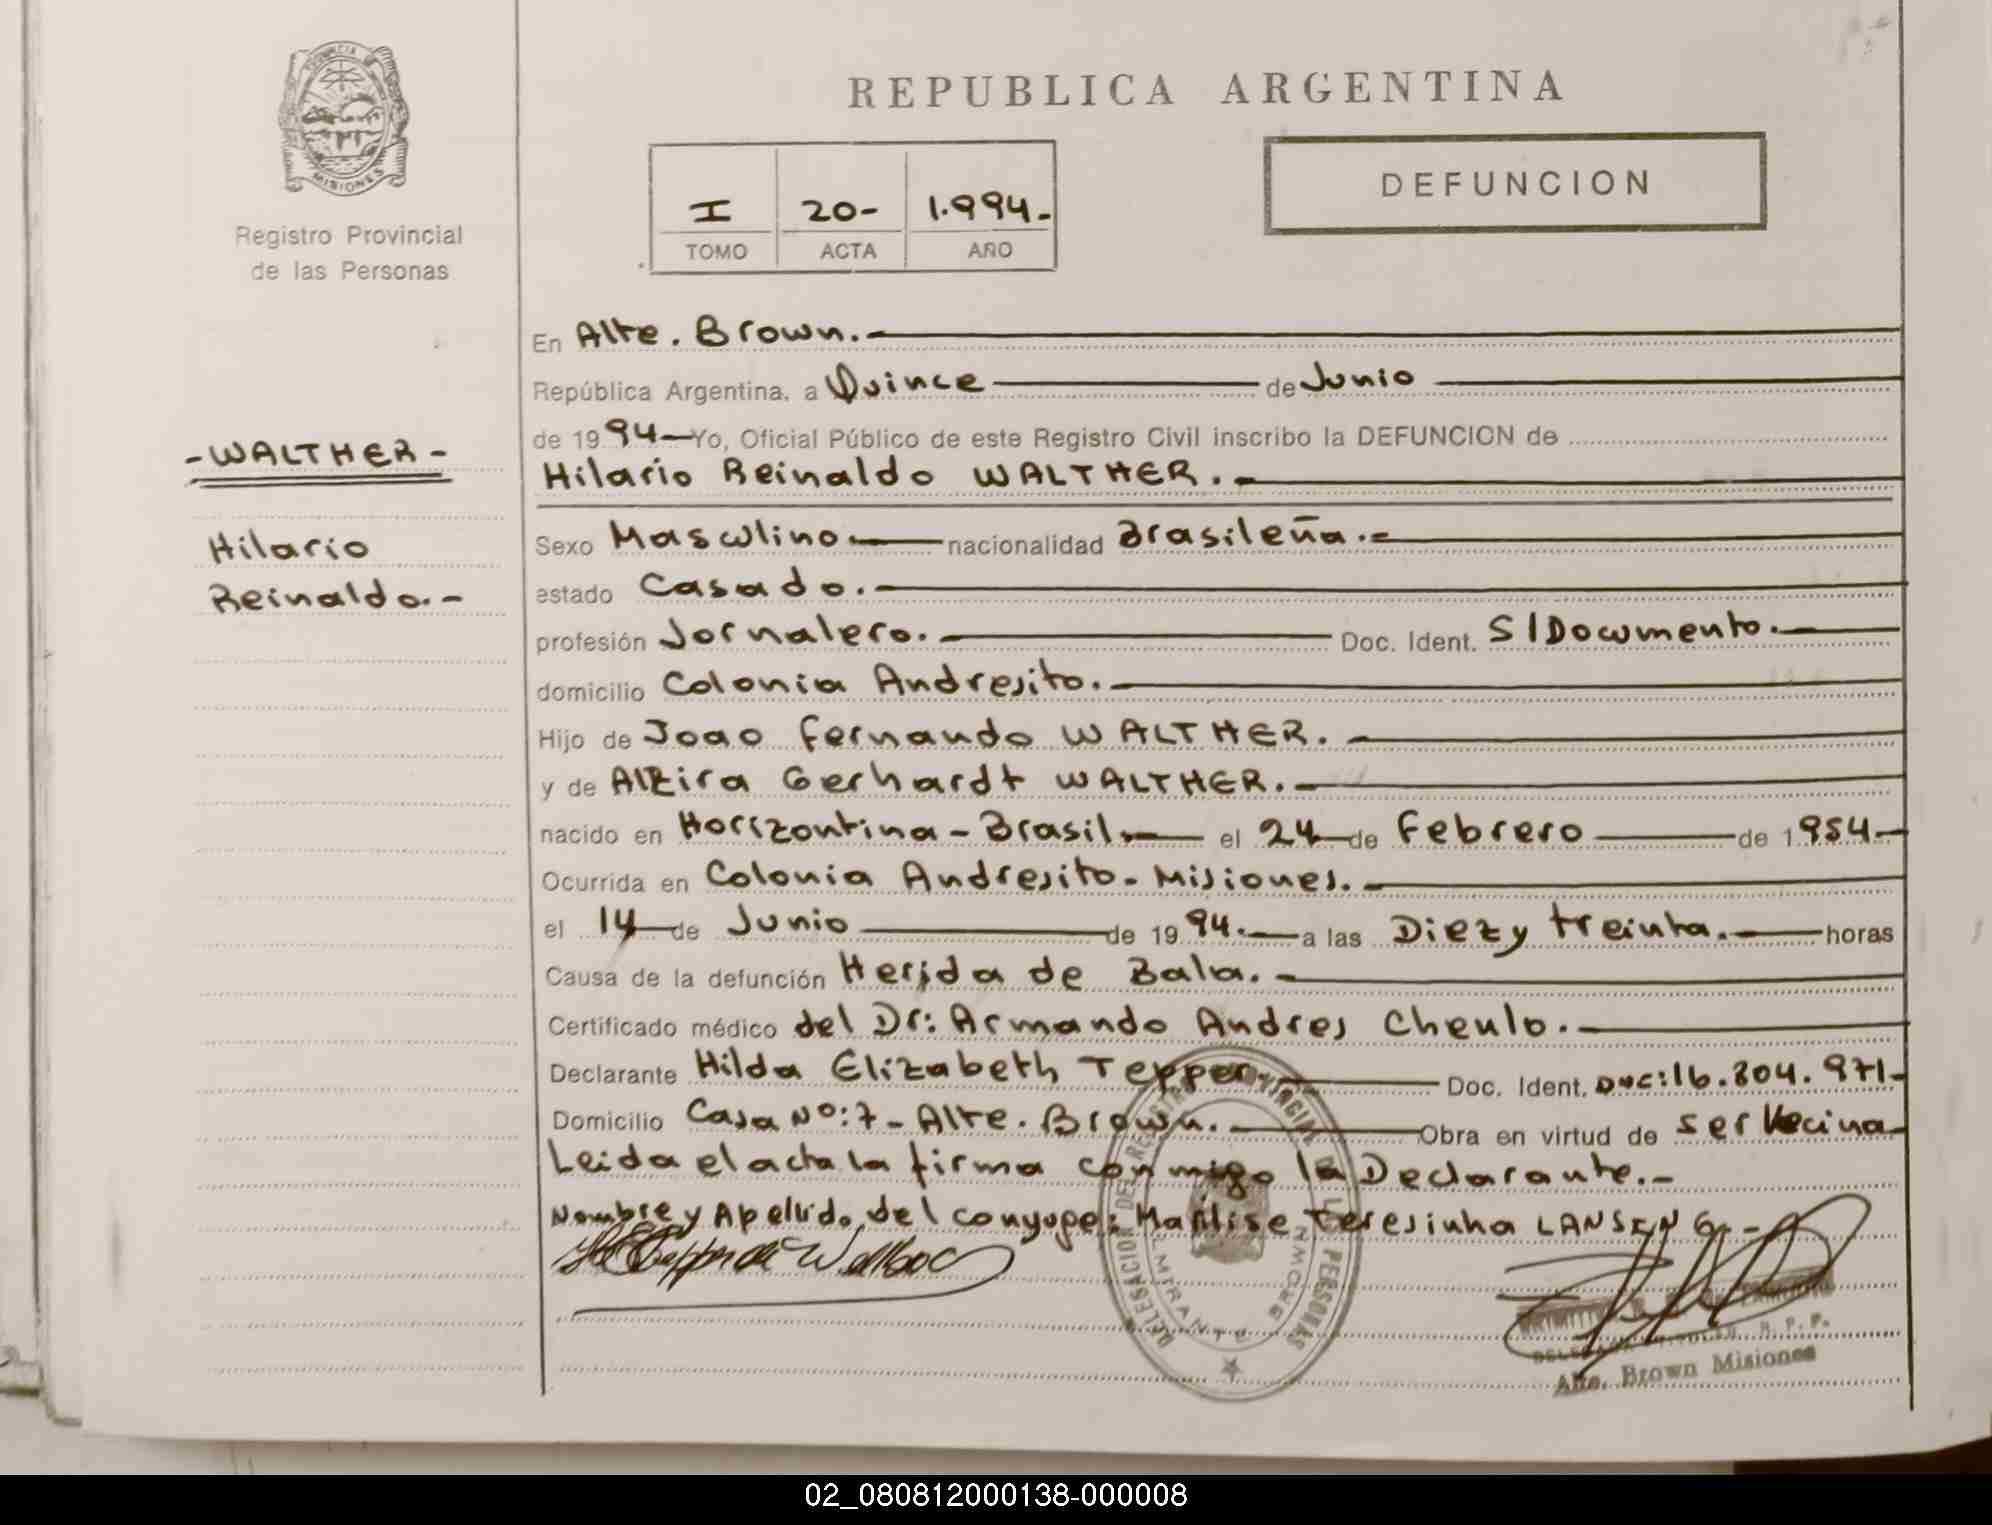 PROVINCIA DE
MISIONES
Registro Provincial
de las Personas
- WALTHER -
Hilario
Reinaldo.-
REPUBLICA ARGENTINA
I 20- 1.994.-
TOMO ACTA AÑO
DEFUNCION
En Alte. Brown.-
República Argentina, a Quince de Junio
de 1994 Yo, Oficial Público de este Registro Civil inscribo la DEFUNCION de
Hilario Reinaldo WALTHER.-
Sexo Masculino.- nacionalidad Brasileña.-
estado Casado.-
profesión Jornalero.- Doc. Ident. S/Documento.-
domicilio Colonia Andresito.-
Hijo de Joao Fernando WALTHER.-
y de Alzira Gerhardt WALTHER.-
nacido en Horizontina - Brasil.- el 24 de Febrero de 1954.-
Ocurrida en Colonia Andresito - Misiones.-
el 14 de Junio de 1994.- a las Diez y treinta.- horas
Causa de la defunción Herida de Bala.-
Certificado médico del Dr: Armando Andres Cheulo.-
Declarante Hilda Elizabeth Tepper.- Doc. Ident. DNC:16.804.971-
Domicilio Casa Nº:7 - Alte. Brown.- Obra en virtud de ser Vecina-
Leida el acta la firma conmigo la Declarante.-
Nombre y Apellido del conyuge: Marlise Teresinha LANSING.-
DELEGACION DEL REGISTRO PROVINCIAL DE LAS PERSONAS
ALMIRANTE BROWN
R. P. P.
Alte. Brown Misiones
02_080812000138-000008